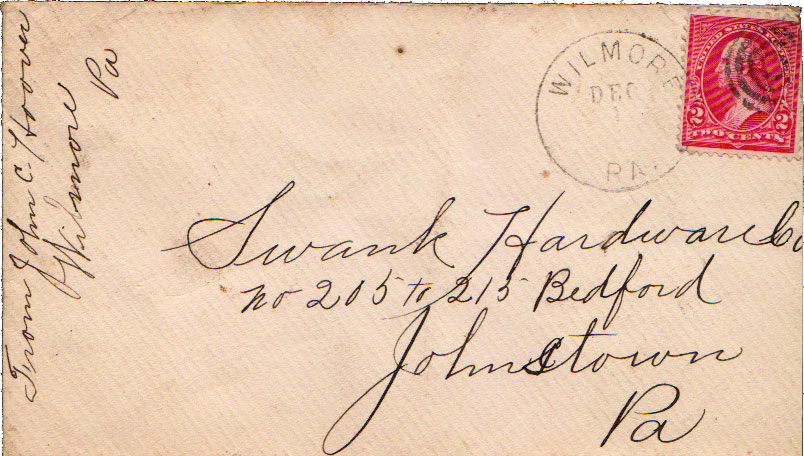 From John C. Hoover
Wilmore
Pa
WILMORE
DEC
1
PA.
UNITED STATES POSTAGE
2 2
TWO CENTS
Swank Hardware Co
no 205 to 215 Bedford
Johnstown
Pa